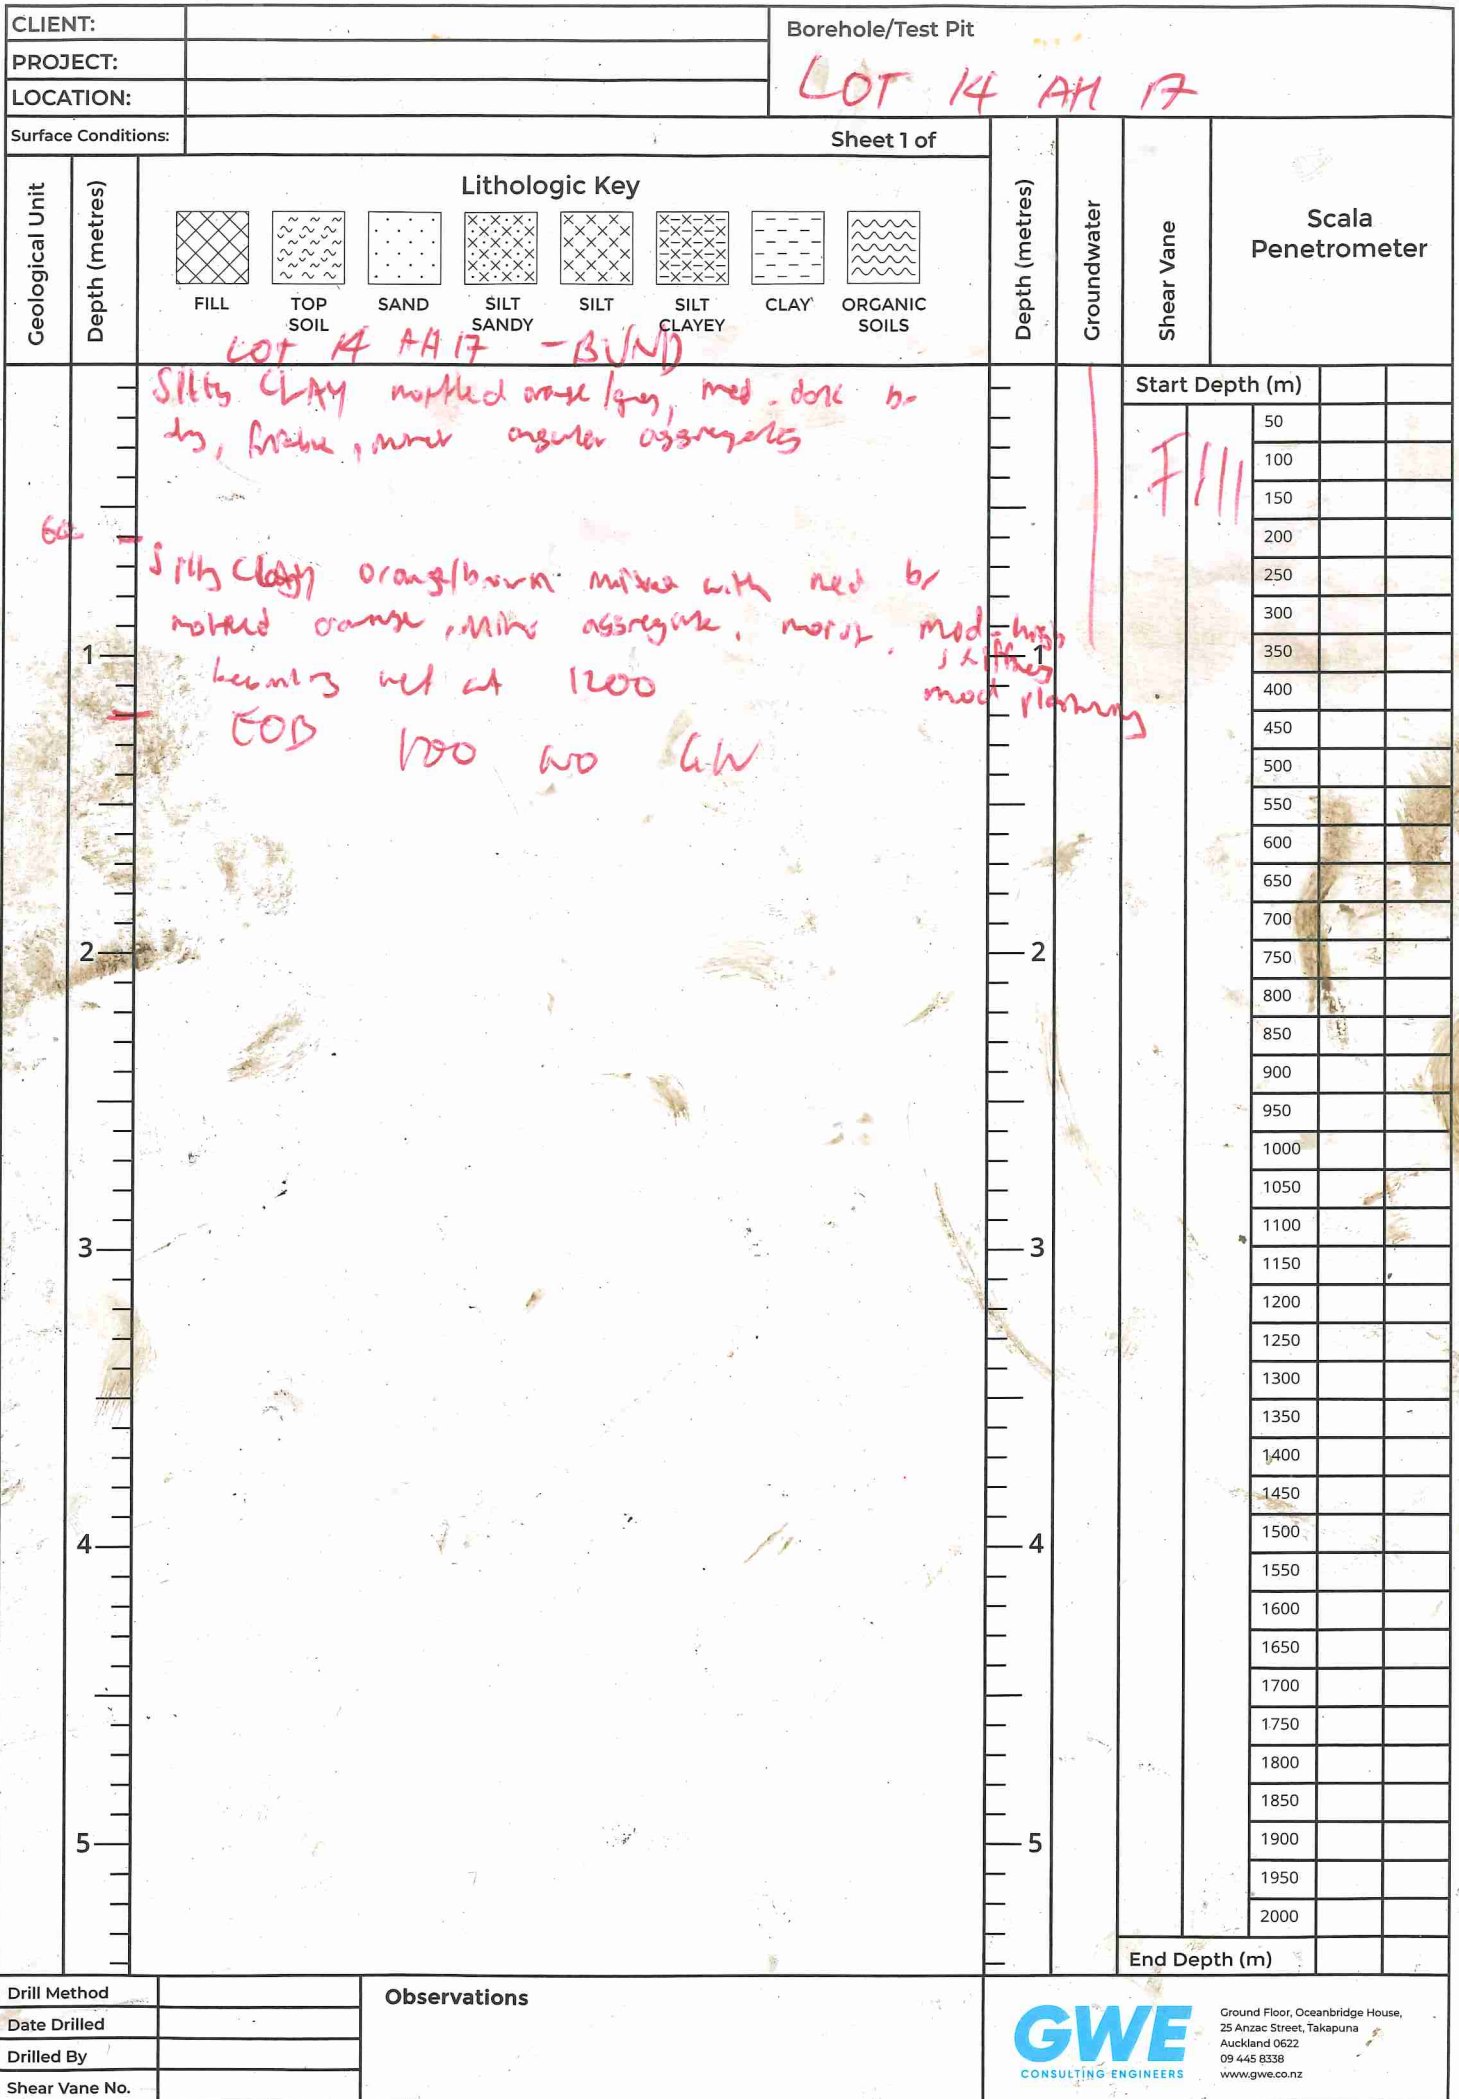 CLIENT:
PROJECT:
LOCATION:
Borehole/Test Pit
LOT 14 AH 17
Surface Conditions:
Sheet 1 of
Geological Unit
Depth (metres)
Lithologic Key
FILL
TOP SOIL
SAND
SILT SANDY
SILT
SILT CLAYEY
CLAY
ORGANIC SOILS
Depth (metres)
Groundwater
Shear Vane
Scala Penetrometer
LOT 14 AH 17 - BUND
Silty CLAY mottled orange/grey, med - dark br
dry, friable, minor angular aggregates
Fill
Silty CLAY orange/brown mixed with med br
mottled orange, minor aggregate, moist, mod-high
stiffness
mod plasticity
becoming wet at 1200
EOB
no GW
1
2
3
4
5
1
2
3
4
5
Start Depth (m)
50
100
150
200
250
300
350
400
450
500
550
600
650
700
750
800
850
900
950
1000
1050
1100
1150
1200
1250
1300
1350
1400
1450
1500
1550
1600
1650
1700
1750
1800
1850
1900
1950
2000
End Depth (m)
Drill Method
Date Drilled
Drilled By
Shear Vane No.
Observations
GWE
CONSULTING ENGINEERS
Ground Floor, Oceanbridge House,
25 Anzac Street, Takapuna
Auckland 0622
09 445 8338
www.gwe.co.nz